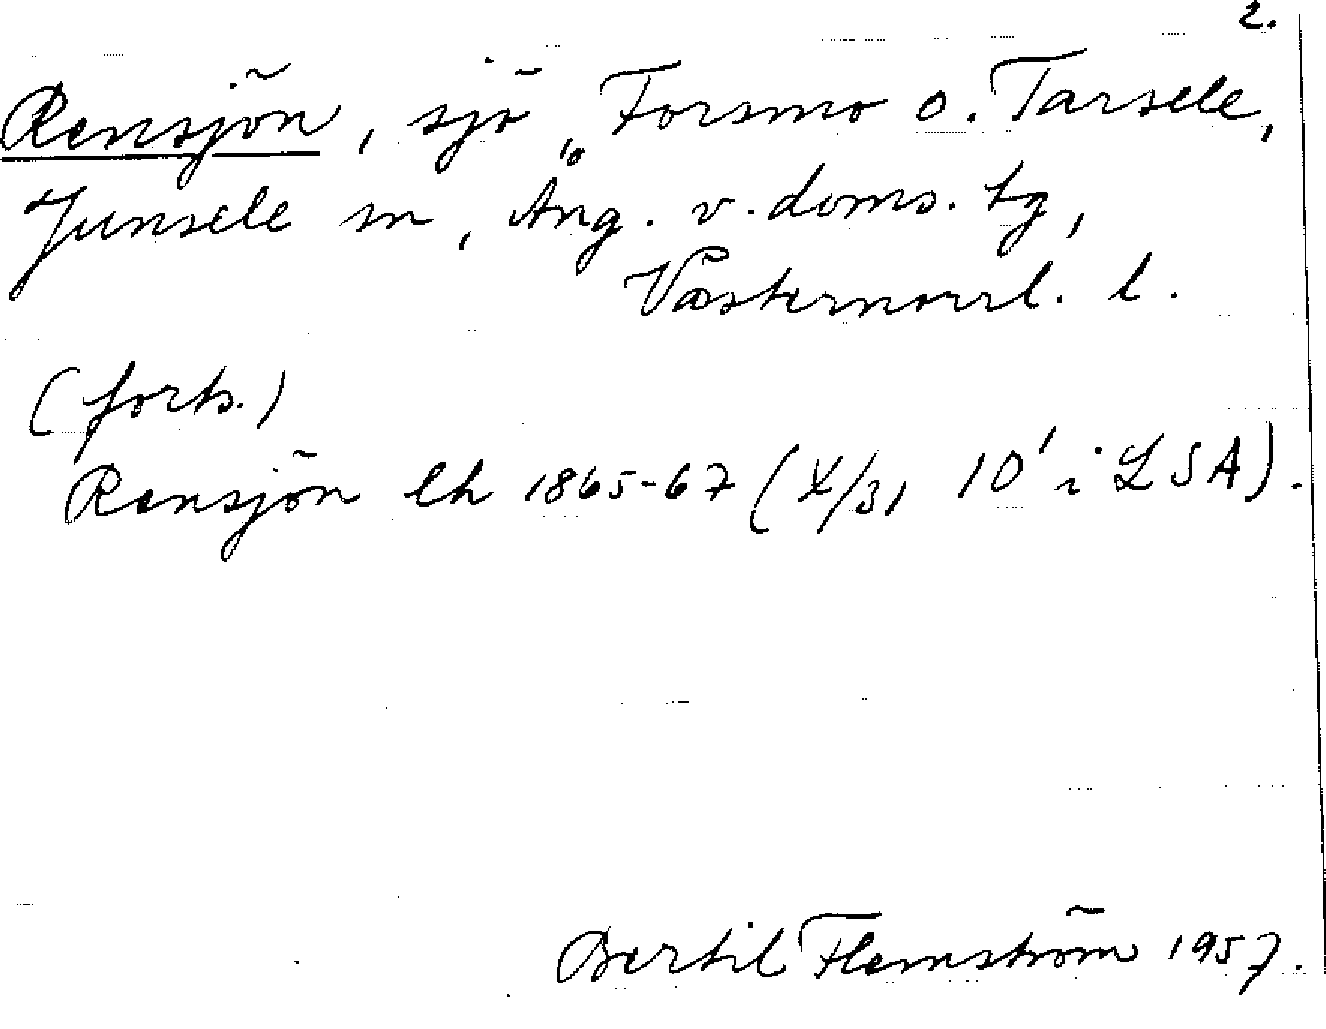 2.
Rensjön, sjö, Forsmo o. Tarsele,
Junsele sn, Ång. v. doms. tg,
Västernorrl. l.
(forts.)
Rensjön lh 1865-67 (X/31 10' i LSA).
Bertil Flemström 1957.